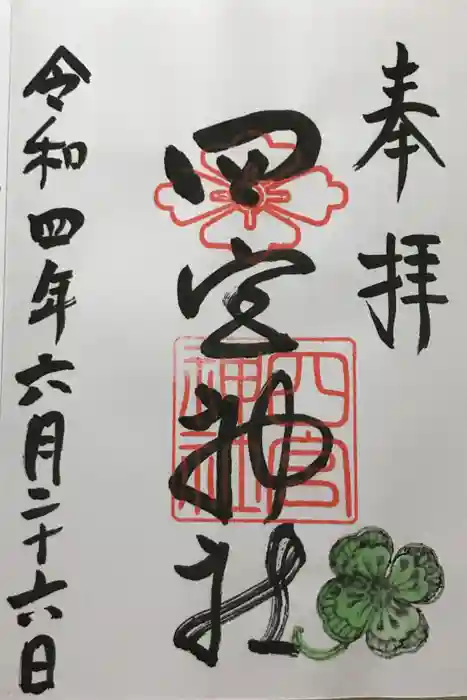 奉拝
四宮神社
四宮
神社
令和四年六月二十六日